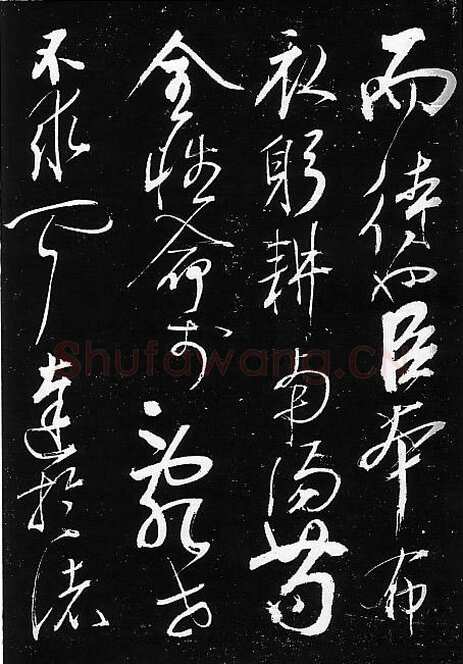 而待也臣本布
衣躬耕南陽苟
全性命於亂世
不求聞達於諸
Shufawang.cn